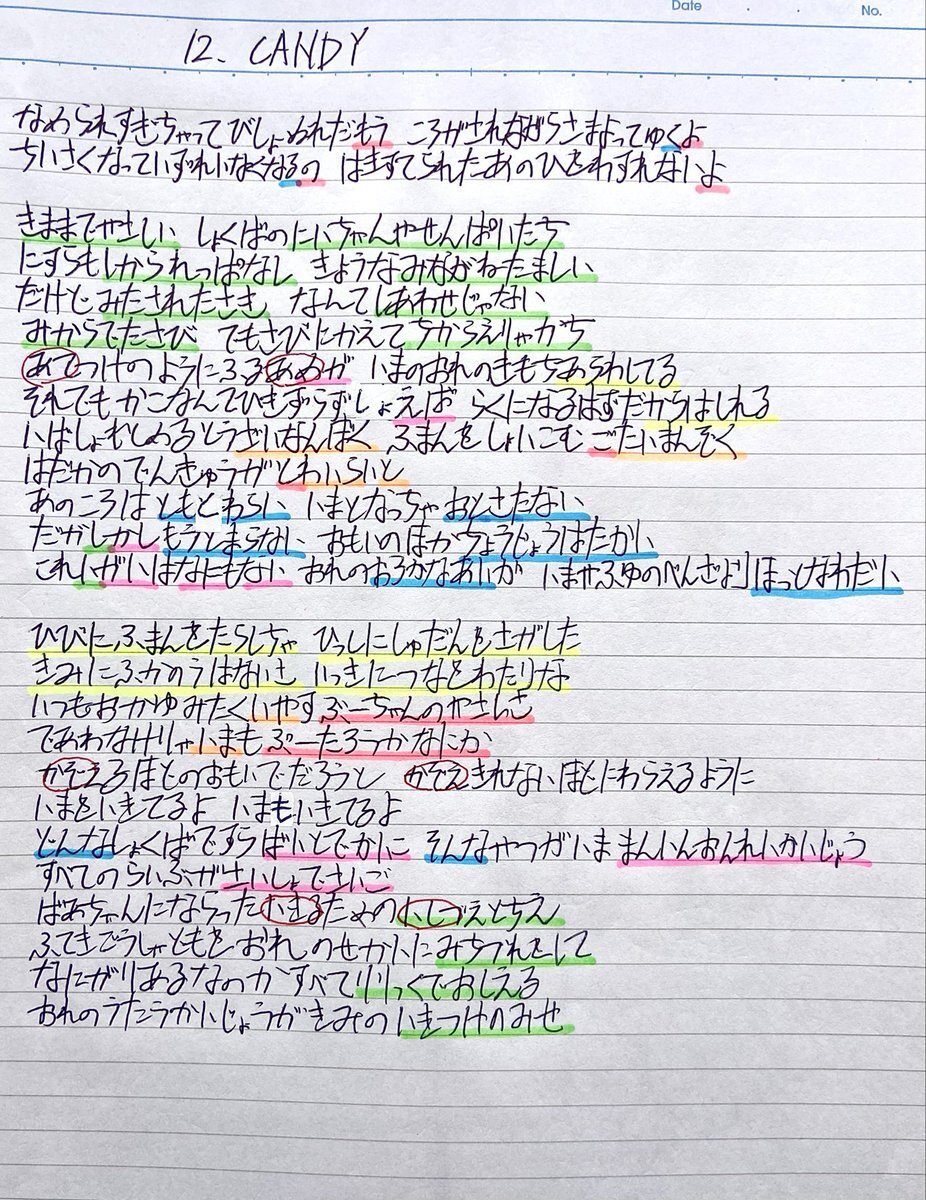 Date . . No.
12. CANDY
なめられすぎちゃってびしょぬれだもう ころがされながらさまよってゆくよ
ちいさくなっていずれいなくなるの はきすてられたあのひをわすれないよ
きままでやさしい しょくばのにいちゃんやせんぱいたち
にすらもしかられっぱなし きようなみながねたましい
だけど みたされたさき なんてしあわせじゃない
みからでたさび でもさびにかえてちからえりゃがち
あてつけのようにふるあめが いまのおれのきもちあらわしてる
それでも かこなんてひきずらずしょえば らくになるはずだからはしれる
いばしょもとめるとうざいなんぼく ふまんをしょいこむ ごたいまんぞく
はだかのでんきゅうがとわいらいと
あのころは ともとわらい いまとなっちゃ おとさたない
だがしかし もうとまらない おもいのほかちょうじょうはたかい
これいがいはなにもない おれのおろかなあいが いませふゆのべんざより ほっとなわだい
ひびにふまんをたらしちゃ ひっしにしゅだんをさがした
きみにふかのうはないさ いっきにつなをわたりな
いつもおかゆみたくいやす ぶーちゃんのやさしさ
であわなけりゃいまも ぷーたろうかなにか
かぞえるほどのおもいでだろうと かぞえきれないほどにわらえるように
いまをいきてるよ いまもいきてるよ
どんなしょくばですら ばいとでかに そんなやつがいま まんいんおんれいかいじょう
すべてのらいぶがさいしょでさいご
ばあちゃんにならった いきるための いしづえとちえ
ふてきごうしゃどもを おれのせかいに みちづれをして
なにがりあるなのか すべてりりっくでおしえる
おれのうたうかいじょうがきみの いきつけのみせ